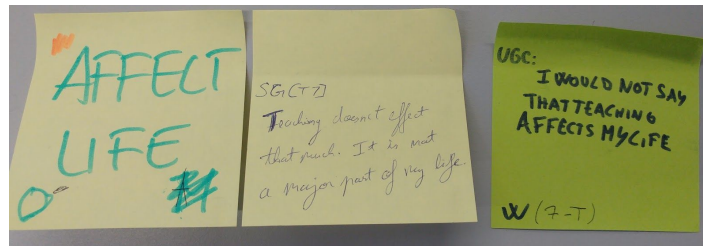 AFFECT
LIFE
SG[T7]
Teaching doesn't effect
that much. It is not
a major part of my life.
UGC:
I WOULD NOT SAY
THAT TEACHING
AFFECTS MY LIFE
W (7-T)